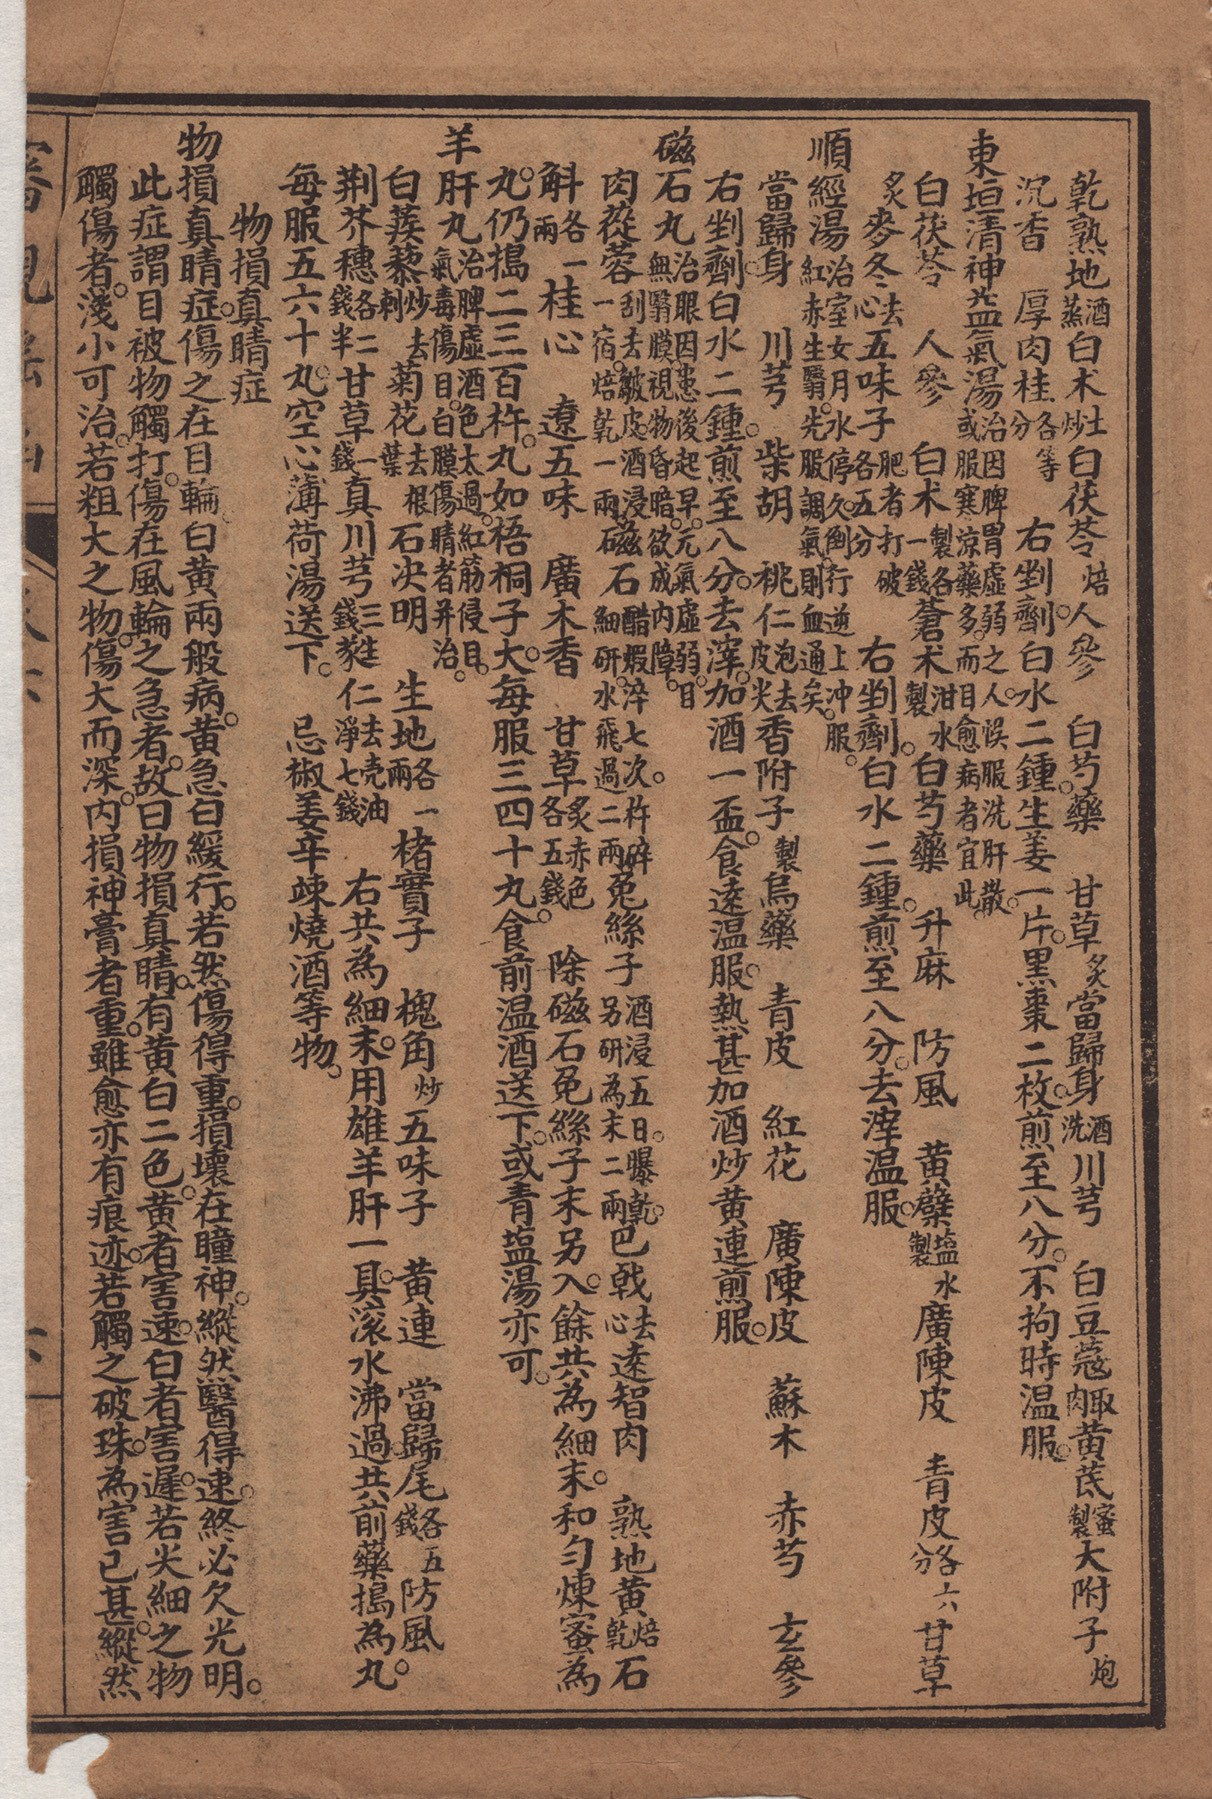 乾熟地酒蒸白术土炒白茯苓焙人參　白芍藥　甘草炙當歸身酒洗川芎　白豆蔻取肉黄茋蜜製大附子炮
沉香　厚肉桂各等分　右剉劑白水二鍾生姜一片黑棗二枚煎至八分不拘時温服
東垣清神益氣湯治因脾胃虛弱之人悞服洗肝散或服寒凉藥多而目愈病者宜此
白茯苓　人參　白术製各一錢蒼术泔水製白芍藥　升麻　防風　黄蘗塩水製廣陳皮　青皮各六分甘草
炙麥冬去心五味子肥者打破各五分　右剉劑白水二鍾煎至八分去滓温服
順經湯治室女月水停久倒行逆上冲服紅赤生翳先服調氣則血通矣
當歸身　川芎　柴胡　桃仁泡去皮尖香附子製烏藥　青皮　紅花　廣陳皮　蘇木　赤芍　玄參
右剉劑白水二鍾煎至八分去滓加酒一盃食遠温服熱甚加酒炒黄連煎服
磁石丸治眼因患後起早元氣虛弱目無翳膜視物昏暗欲成内障
肉蓯蓉刮去皺皮酒浸一宿焙乾一兩磁石醋煆淬七次杵碎細研水飛過二兩兔絲子酒浸五日曝乾另研為末二兩巴戟去心遠智肉　熟地黄焙乾石
斛各一兩桂心　遼五味　廣木香　甘草炙赤色各五錢　除磁石兔絲子末另入餘共為細末和勻煉蜜為
丸仍搗二三百杵丸如梧桐子大每服三四十丸食前温酒送下或青塩湯亦可
羊肝丸治脾虛酒色太過紅筋侵目氣毒傷目白膜傷睛者并治
白蒺藜炒去刺菊花去根葉石决明　生地各一兩楮實子　槐角炒五味子　黄連　當歸尾各五錢防風
荆芥穗各二錢半甘草一錢真川芎三錢蕤仁去壳油淨七錢　右共為細末用雄羊肝一具滚水沸過共前藥搗為丸
每服五六十丸空心薄荷湯送下　忌椒姜辛竦燒酒等物
物損真睛症
物損真睛症傷之在目輪白黄兩般病黄急白緩行若然傷得重損壞在瞳神縱然醫得速終必欠光明
此症謂目被物觸打傷在風輪之急者故曰物損真睛有黄白二色黄者害速白者害遲若尖細之物
觸傷者淺小可治若粗大之物傷大而深内損神膏者重雖愈亦有痕迹若觸之破珠為害已甚縱然